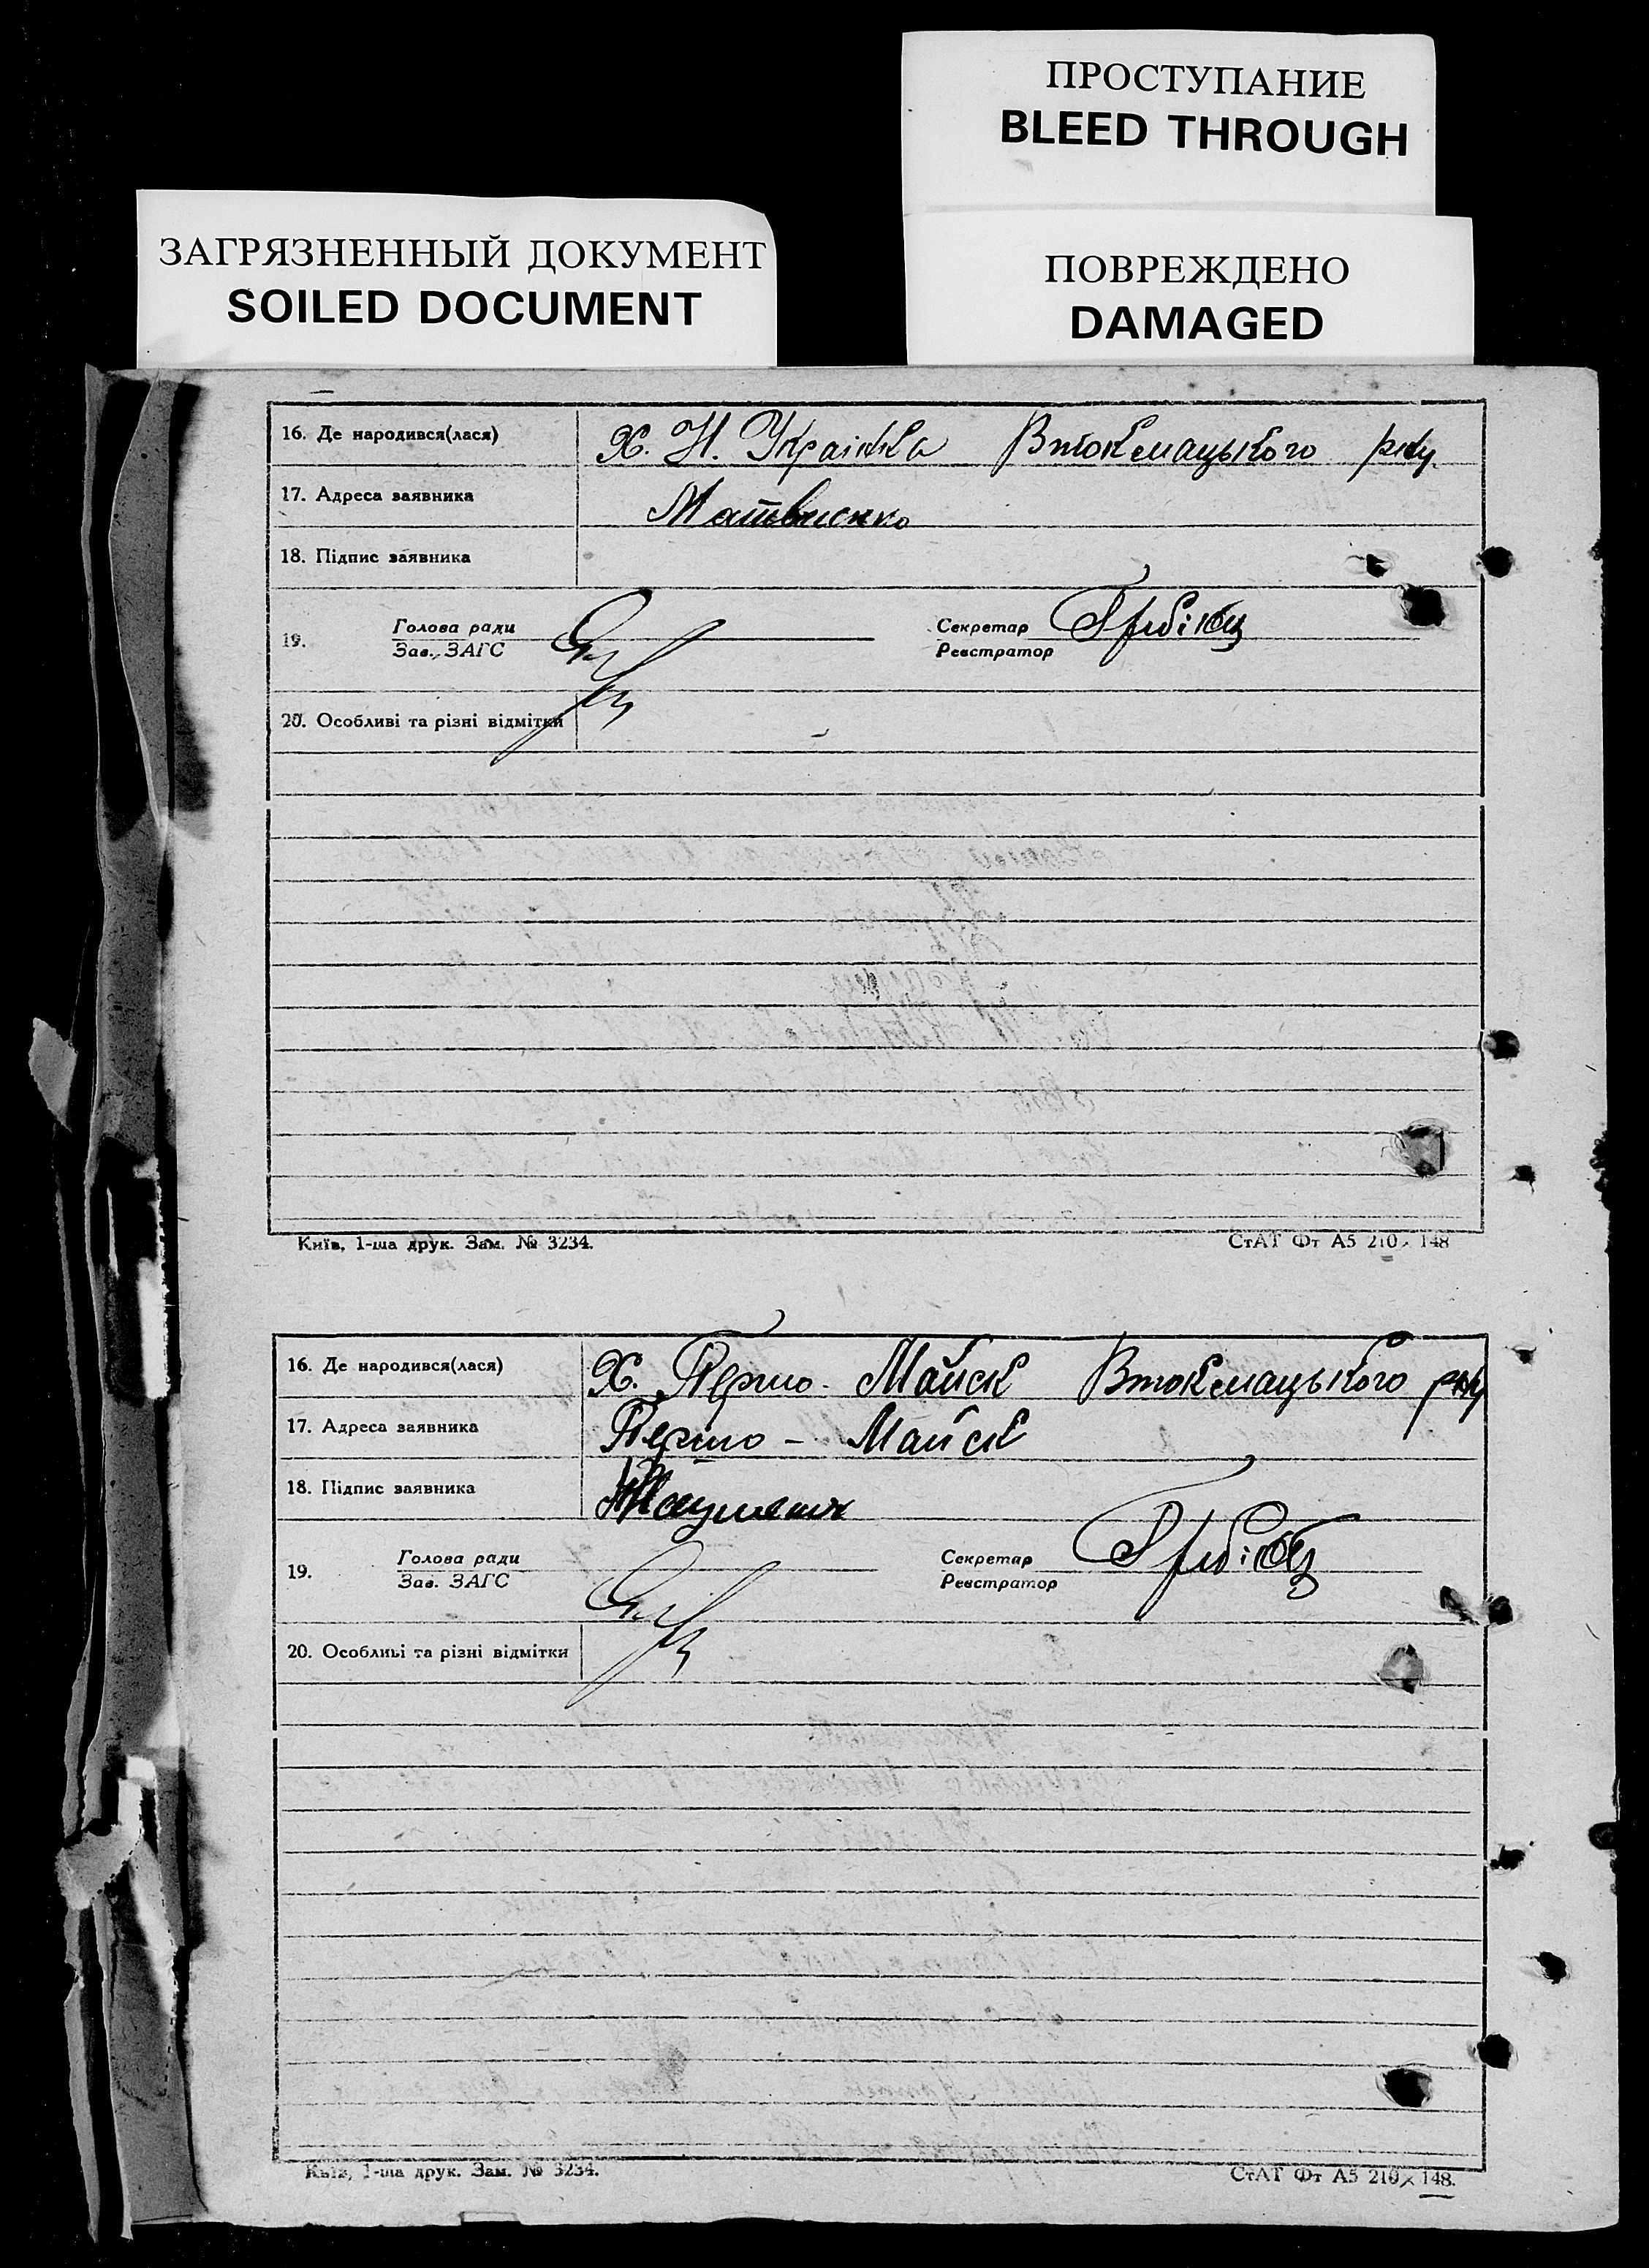 ПРОСТУПАНИЕ
BLEED THROUGH
ЗАГРЯЗНЕННЫЙ ДОКУМЕНТ
SOILED DOCUMENT
ПОВРЕЖДЕНО
DAMAGED
16. Де народився(лася) Х. Н. Українка Втокмацького р-ну
17. Адреса заявника Матвиенко
18. Підпис заявника
19. Голова ради Секретар
Зав. ЗАГС Реєстратор
20. Особливі та різні відмітки
Київ, 1-ша друк. Зам. № 3234. СтАТ Фт А5 210×148
16. Де народився(лася) Х. Першо-Майск Втокмацького р-ну
17. Адреса заявника Першо-Майск
18. Підпис заявника
19. Голова ради Секретар
Зав. ЗАГС Реєстратор
20. Особливі та різні відмітки
Київ, 1-ша друк. Зам. № 3234. СтАТ Фт А5 210×148.